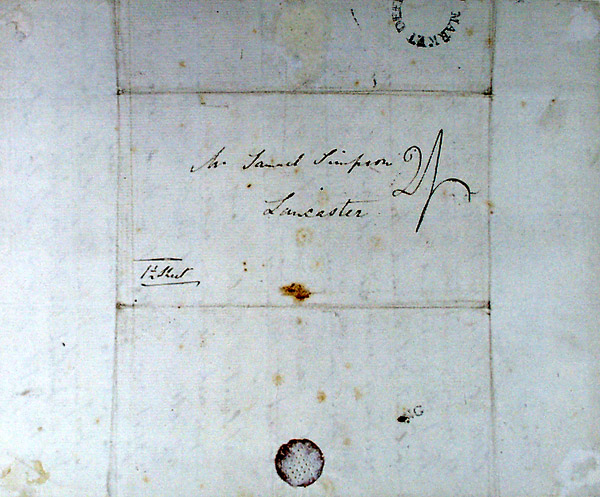 MARKET DEE
Mr Samuel Simpson 2/
Lancaster
1st Sheet
NG